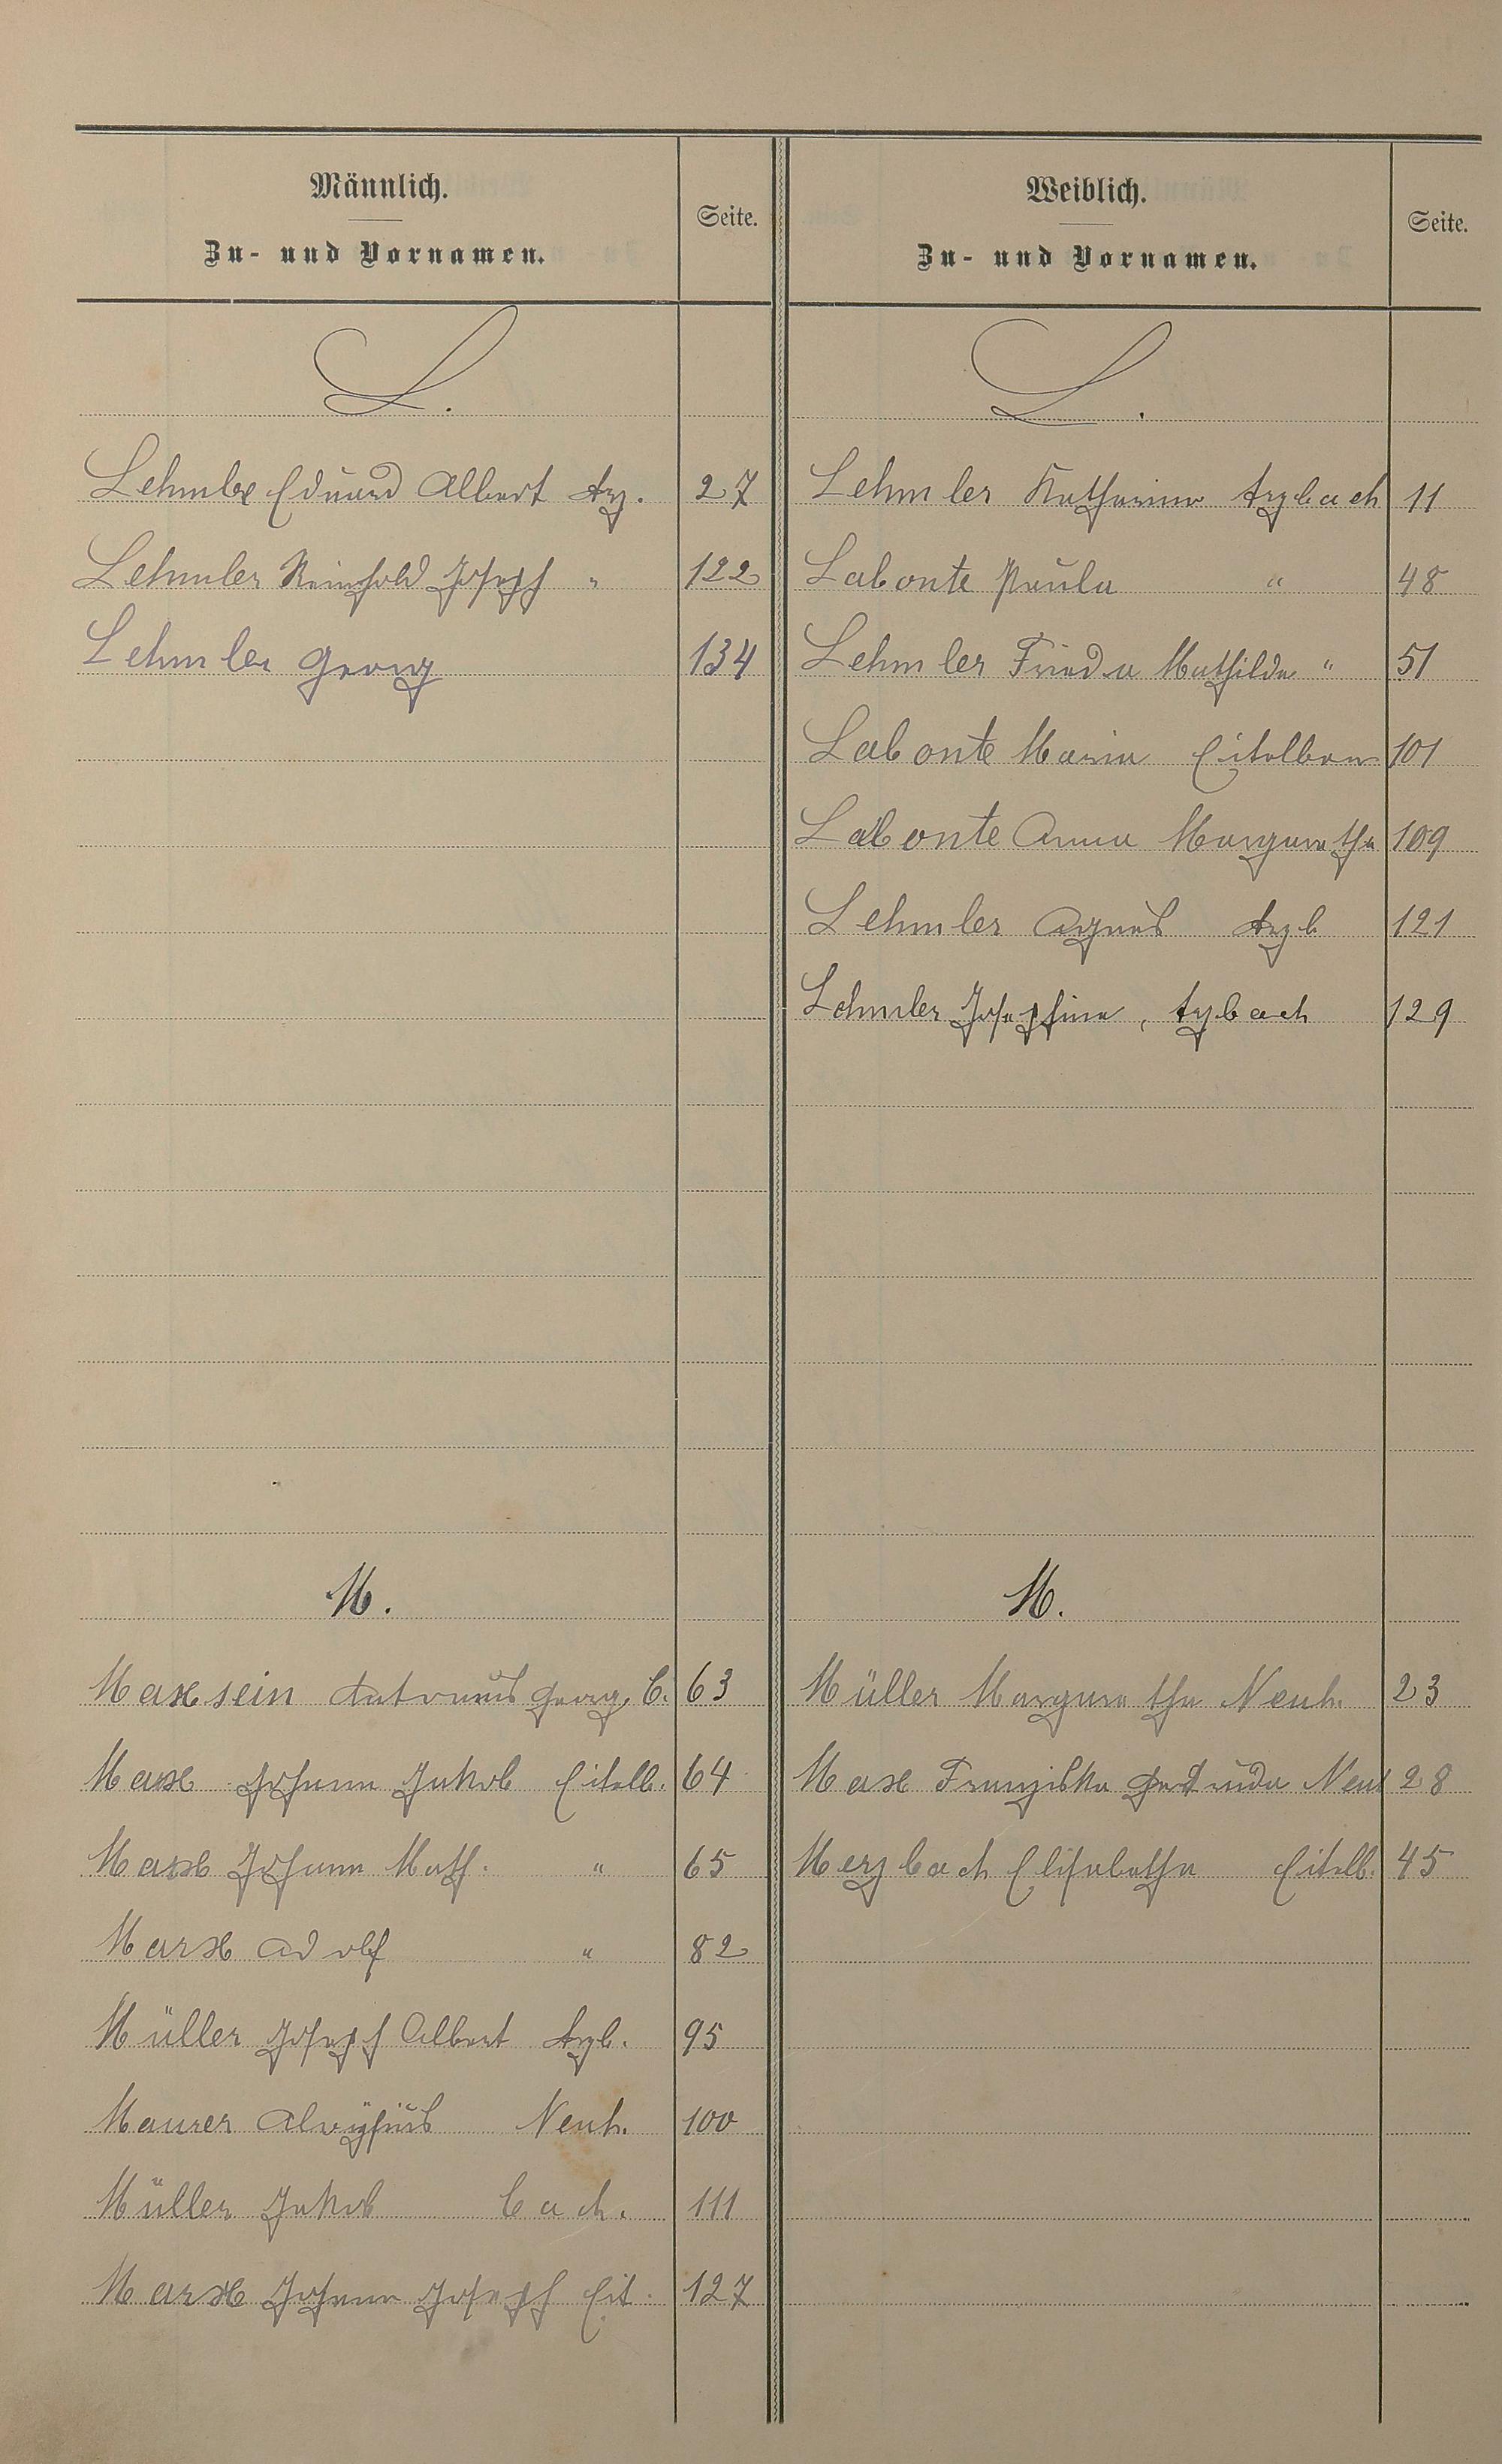 Männlich.
Zu- und Vornamen.
Seite.
L.
Lehmler Eduard Albert Arz. 27
Lehmler Reinhold Joseph " 122
Lehmler Georg 134
M.
Maxsein Antonius Georg, C. 63
Marx Johann Jakob Eitelb. 64
Marx Johann Math. " 65
Marx Adolf " 82
Müller Joseph Albert Arzb. 95
Maurer Aloysius Neuh. 100
Müller Jakob Cad. 111
Marx Johann Joseph Eit. 127
Weiblich.
Zu- und Vornamen.
Seite.
L.
Lehmler Katharina Arzbach 11
Labonte Paula " 48
Lehmler Frieda Mathilde " 51
Labonte Maria Eitelborn 101
Labonte Anna Margaretha 109
Lehmler Agnes Arzb 121
Lehmler Josephine, Arzbach 129
M.
Müller Margaretha Neuh. 23
Marx Franziska Gertruda Neuh 28
Merzbach Elisabetha Eitelb. 45